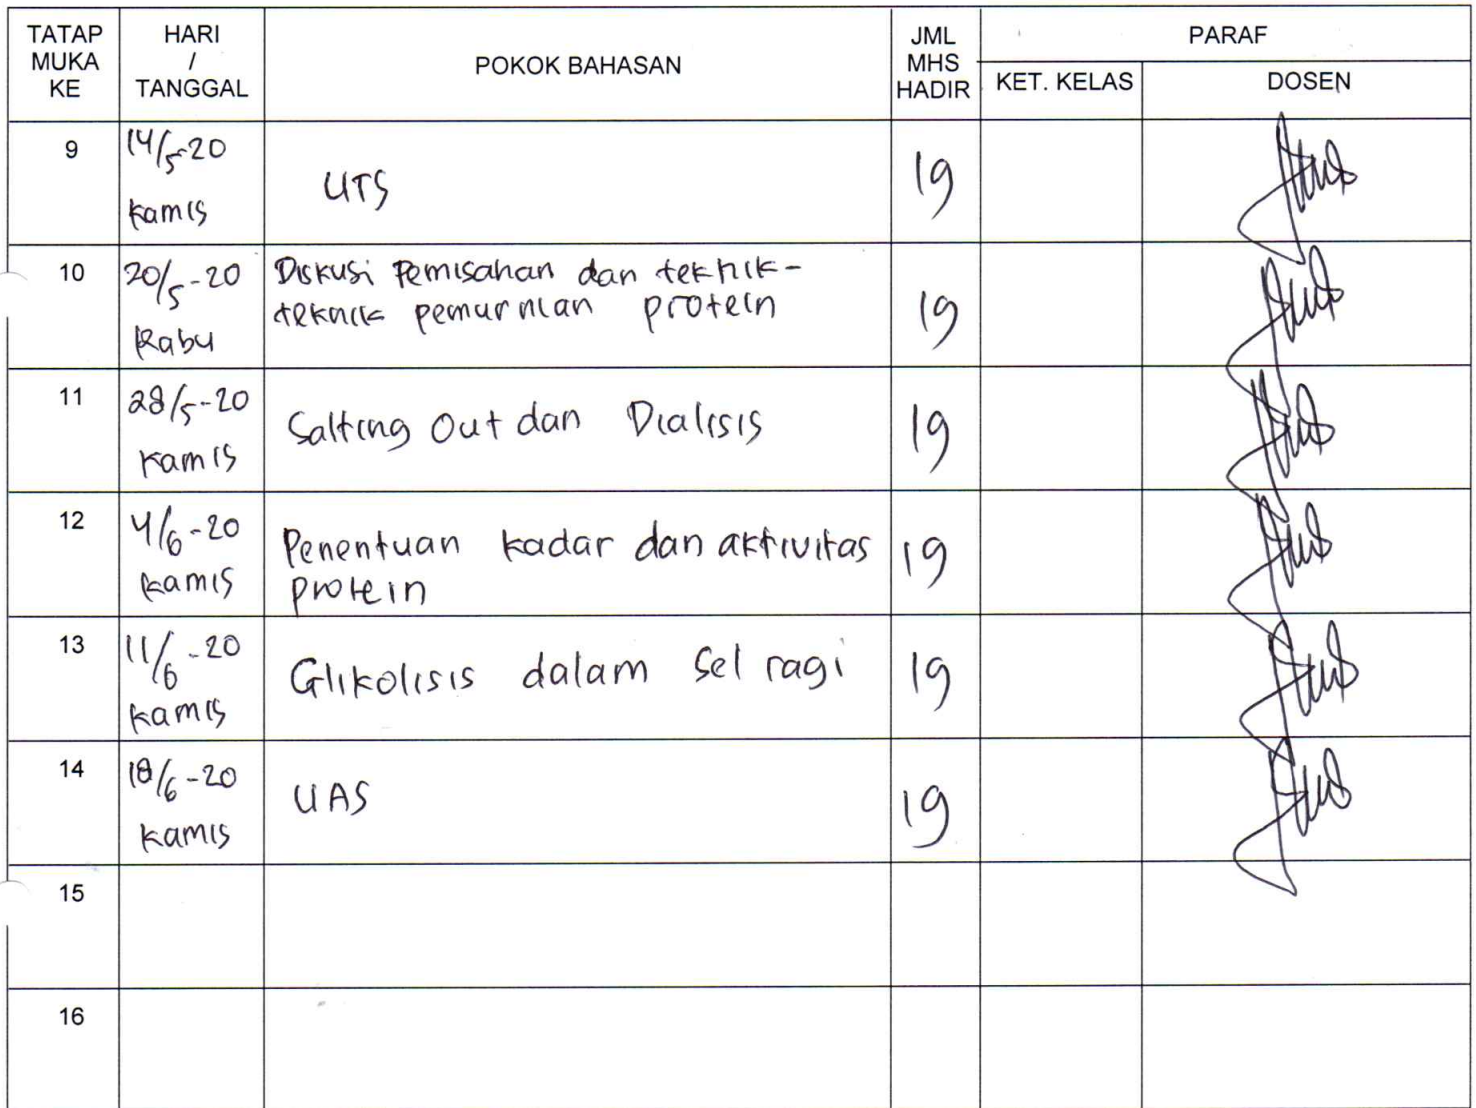 TATAP MUKA KE
HARI / TANGGAL
POKOK BAHASAN
JML MHS HADIR
PARAF
KET. KELAS
DOSEN
9
14/5-20
Kamis
UTS
19
10
20/5-20
Rabu
Diskusi Pemisahan dan teknik-
teknik pemurnian protein
19
11
28/5-20
Kamis
Salting Out dan Dialisis
19
12
4/6-20
Kamis
Penentuan kadar dan aktivitas
protein
19
13
11/6-20
Kamis
Glikolisis dalam sel ragi
19
14
18/6-20
Kamis
UAS
19
15
16